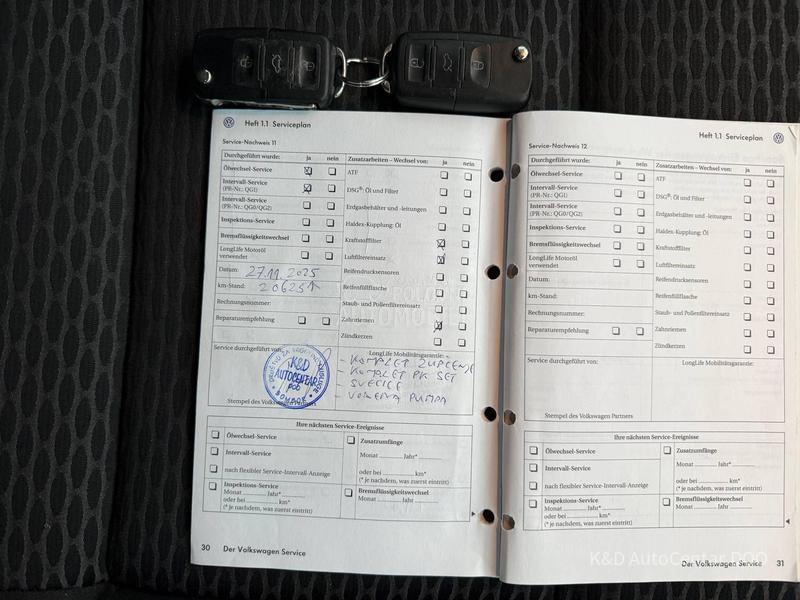 Heft 1.1 Serviceplan
Service-Nachweis 11
Durchgeführt wurde: ja nein
Ölwechsel-Service
Intervall-Service
(PR-Nr.: QG1)
Intervall-Service
(PR-Nr.: QG0/QG2)
Inspektions-Service
Bremsflüssigkeitswechsel
LongLife Motoröl
verwendet
Datum: 27.11.2025
km-Stand: 206251
Rechnungsnummer:
Reparaturempfehlung
Zusatzarbeiten – Wechsel von: ja nein
ATF
DSG®: Öl und Filter
Erdgasbehälter und -leitungen
Haldex-Kupplung: Öl
Kraftstofffilter
Luftfiltereinsatz
Reifendrucksensoren
Reifenfüllflasche
Staub- und Pollenfiltereinsatz
Zahnriemen
Zündkerzen
Service durchgeführt von:
K&D
AUTOCENTAR
DOO
SOMBOR
Stempel des Volkswagen Partners
LongLife Mobilitätsgarantie:
- KOMPLET ZUPČENJE
- KOMPLET PK SET
- SVEĆICE
- VODENA PUMPA
Ihre nächsten Service-Ereignisse
Ölwechsel-Service
Intervall-Service
nach flexibler Service-Intervall-Anzeige
Inspektions-Service
Monat ........ Jahr* ........
oder bei ........ km*
(* je nachdem, was zuerst eintritt)
Zusatzumfänge
Monat ........ Jahr* ........
oder bei ........ km*
(* je nachdem, was zuerst eintritt)
Bremsflüssigkeitswechsel
Monat ........ Jahr ........
30 Der Volkswagen Service
Heft 1.1 Serviceplan
Service-Nachweis 12
Durchgeführt wurde: ja nein
Ölwechsel-Service
Intervall-Service
(PR-Nr.: QG1)
Intervall-Service
(PR-Nr.: QG0/QG2)
Inspektions-Service
Bremsflüssigkeitswechsel
LongLife Motoröl
verwendet
Datum:
km-Stand:
Rechnungsnummer:
Reparaturempfehlung
Zusatzarbeiten – Wechsel von: ja nein
ATF
DSG®: Öl und Filter
Erdgasbehälter und -leitungen
Haldex-Kupplung: Öl
Kraftstofffilter
Luftfiltereinsatz
Reifendrucksensoren
Reifenfüllflasche
Staub- und Pollenfiltereinsatz
Zahnriemen
Zündkerzen
Service durchgeführt von:
Stempel des Volkswagen Partners
LongLife Mobilitätsgarantie:
Ihre nächsten Service-Ereignisse
Ölwechsel-Service
Intervall-Service
nach flexibler Service-Intervall-Anzeige
Inspektions-Service
Monat ........ Jahr* ........
oder bei ........ km*
(* je nachdem, was zuerst eintritt)
Zusatzumfänge
Monat ........ Jahr* ........
oder bei ........ km*
(* je nachdem, was zuerst eintritt)
Bremsflüssigkeitswechsel
Monat ........ Jahr ........
Der Volkswagen Service 31
K&D AutoCentar DOO